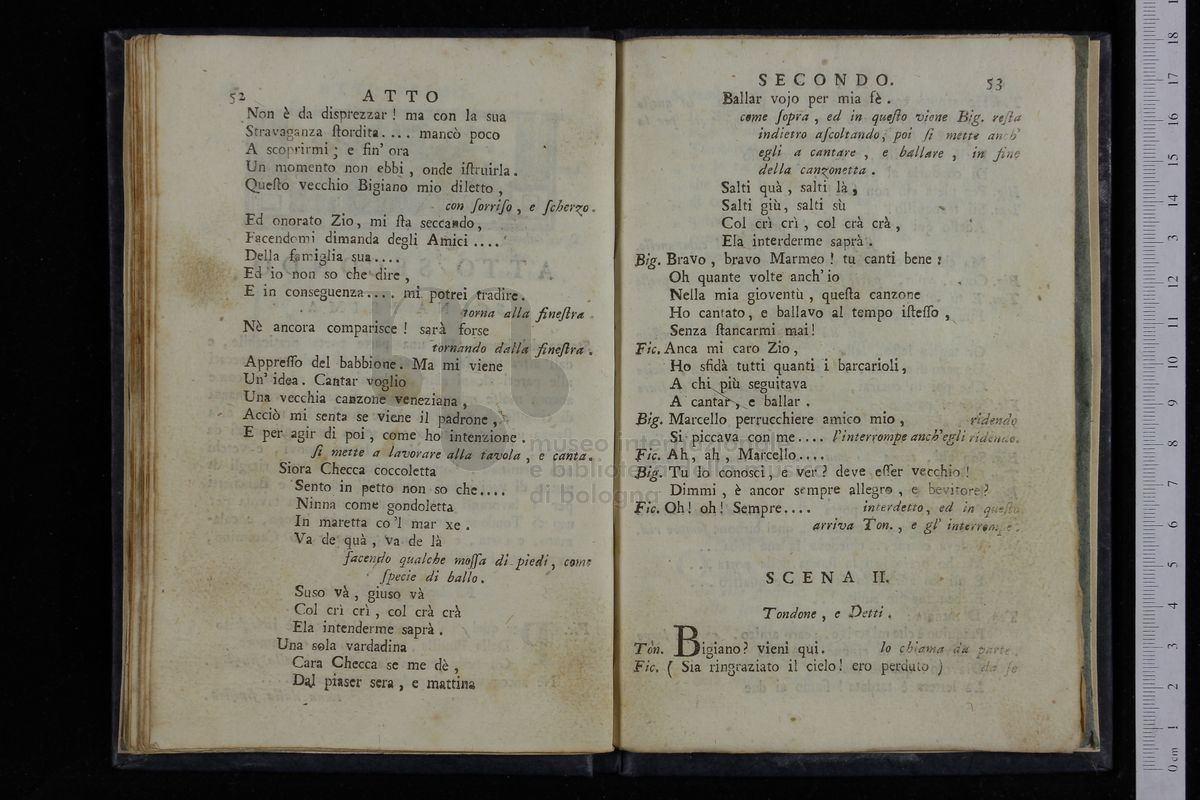 52
ATTO
Non è da disprezzar ! ma con la sua
Stravaganza ſtordita.... mancò poco
A scoprirmi ; e fin' ora
Un momento non ebbi , onde iſtruirla .
Queſto vecchio Bigiano mio diletto ,
con ſorriſo , e ſcherzo .
Ed onorato Zio, mi ſta seccando ,
Facendomi dimanda degli Amici ....
Della famiglia sua ....
Ed 'io non so che dire ,
E in conseguenza .... mi potrei tradire.
torna alla fineſtra .
Nè ancora comparisce ! sarà forse
tornando dalla fineſtra .
Appreſſo del babbione . Ma mi viene
Un' idea . Cantar voglio
Una vecchia canzone veneziana ,
Acciò mi senta se viene il padrone ,
E per agir di poi , come ho intenzione .
ſi mette a lavorare alla tavola , e canta .
Siora Checca coccoletta
Sento in petto non so che....
Ninna come gondoletta
In maretta co 'l mar xe .
Va de quà , va de là
facendo qualche moſſa di piedi , come
ſpecie di ballo .
Suso và , giuso và
Col crì crì , col crà crà
Ela intenderme saprà .
Una sola vardadina
Cara Checca se me dè ,
Dal piaser sera , e mattina
SECONDO.
53
Ballar vojo per mia fè .
come ſopra , ed in queſto viene Big. reſta
indietro aſcoltando ; poi ſi mette anch'
egli a cantare , e ballare , in fine
della canzonetta .
Salti quà , salti là ,
Salti giù , salti sù
Col crì crì , col crà crà ,
Ela interderme saprà .
Big. Bravo , bravo Marmeo ! tu canti bene :
Oh quante volte anch' io
Nella mia gioventù , queſta canzone
Ho cantato , e ballavo al tempo iſteſſo ,
Senza ſtancarmi mai !
Fic. Anca mi caro Zio ,
Ho sfidà tutti quanti i barcarioli ,
A chi più seguitava
A cantar , e ballar .
Big. Marcello perrucchiere amico mio , ridendo
Si piccava con me .... l'interrompe anch'egli ridendo.
Fic. Ah , ah , Marcello ....
Big. Tu lo conosci , e ver ? deve eſſer vecchio !
Dimmi , è ancor sempre allegro , e bevitore ?
Fic. Oh ! oh ! Sempre .... interdetto , ed in queſto
arriva Ton. , e gl' interrompe .
SCENA II.
Tondone , e Detti .
Ton. Bigiano ? vieni qui . lo chiama da parte .
Fic. ( Sia ringraziato il cielo ! ero perduto ) da ſe
museo internazionale
e biblioteca della musica
di bologna
0 cm 1 2 3 4 5 6 7 8 9 10 11 12 13 14 15 16 17 18